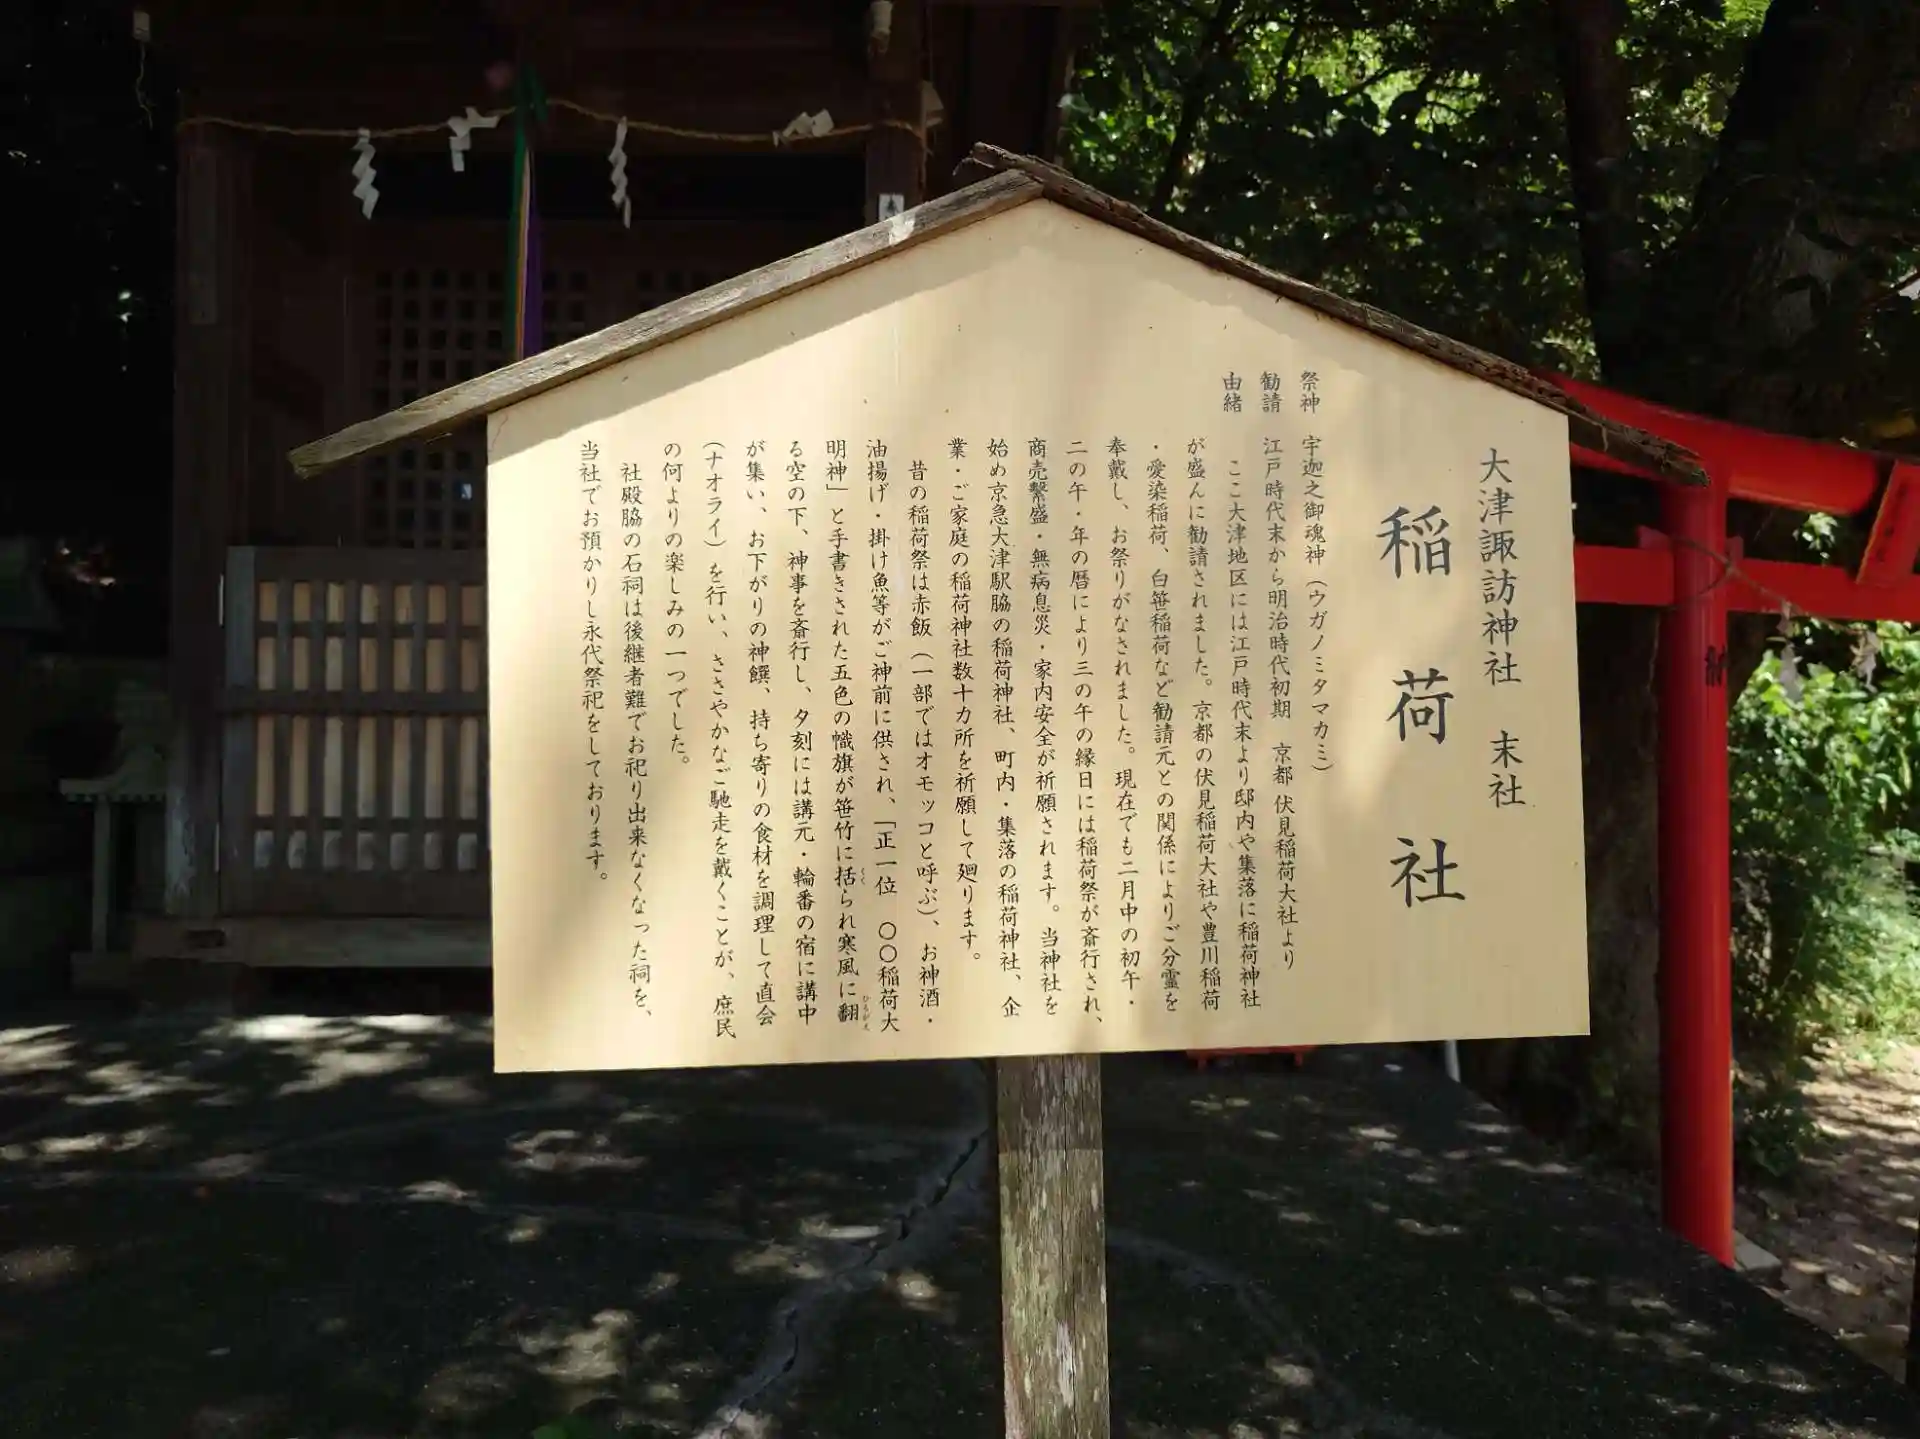 大津諏訪神社 末社
稲荷社
祭神 宇迦之御魂神(ウガノミタマカミ)
勧請 江戸時代末から明治時代初期 京都 伏見稲荷大社より
由緒 ここ大津地区には江戸時代末より邸内や集落に稲荷神社
が盛んに勧請されました。京都の伏見稲荷大社や豊川稲荷
・愛染稲荷、白笹稲荷など勧請元との関係によりご分霊を
奉戴し、お祭りがなされました。現在でも二月中の初午・
二の午・年の暦により三の午の縁日には稲荷祭が斎行され、
商売繫盛・無病息災・家内安全が祈願されます。当神社を
始め京急大津駅脇の稲荷神社、町内・集落の稲荷神社、企
業・ご家庭の稲荷神社数十カ所を祈願して廻ります。
昔の稲荷祭は赤飯(一部ではオモッコと呼ぶ)、お神酒・
油揚げ・掛け魚等がご神前に供され、「正一位 〇〇稲荷大
明神」と手書きされた五色の幟旗が笹竹に括られ寒風に翻
る空の下、神事を斎行し、夕刻には講元・輪番の宿に講中
が集い、お下がりの神饌、持ち寄りの食材を調理して直会
(ナオライ)を行い、ささやかなご馳走を戴くことが、庶民
の何よりの楽しみの一つでした。
社殿脇の石祠は後継者難でお祀り出来なくなった祠を、
当社でお預かりし永代祭祀をしております。